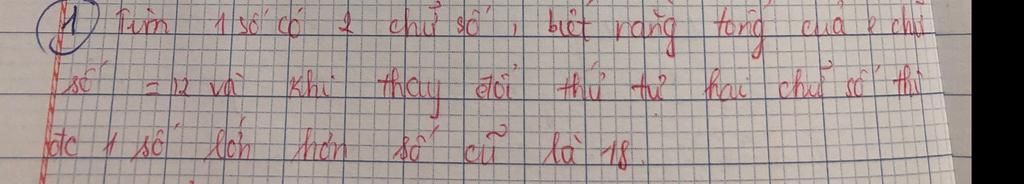 1 Tìm 1 số có 2 chữ số, biết rằng tổng của 2 chữ
số = 12 và khi thay đổi thứ tự hai chữ số thì
đc 1 số lớn hơn số cũ là 18.